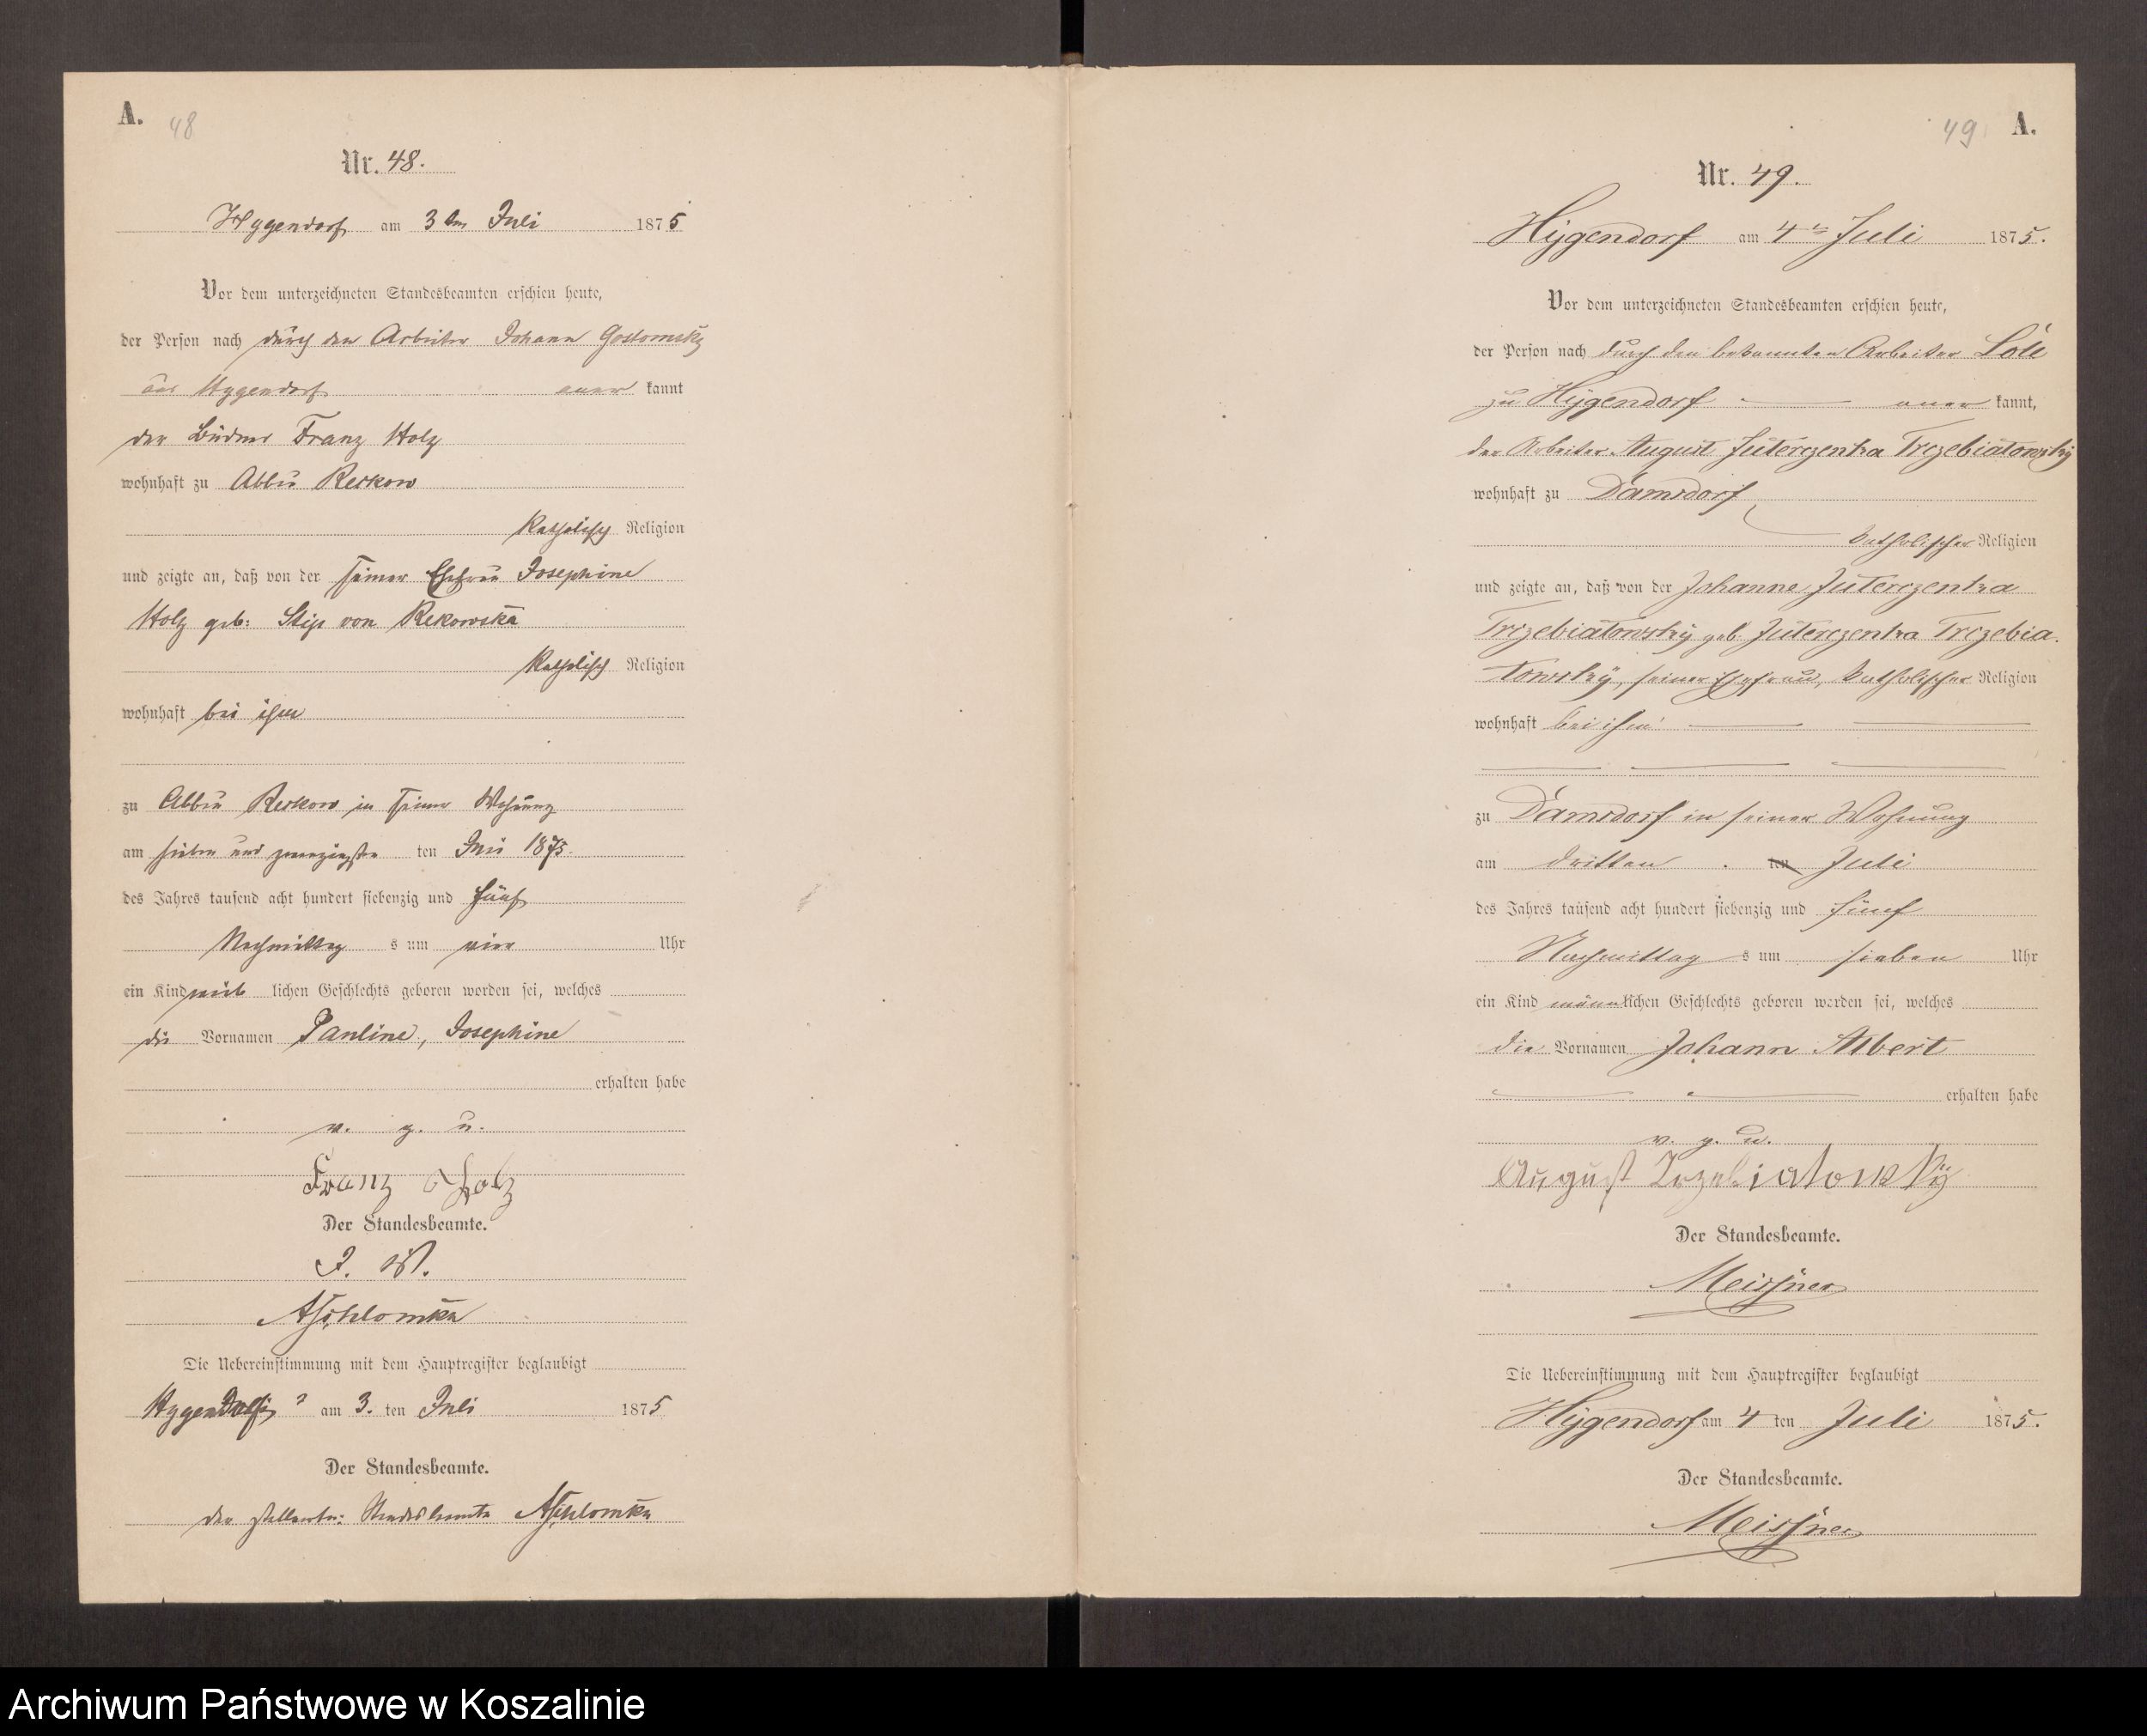 A. 48
Nr. 48.
Hygendorf am 3ten Juli 1875
Vor dem unterzeichneten Standesbeamten erschien heute,
der Person nach durch den Arbeiter Johann Gostomsky
aus Hygendorf aner kannt
der Büdner Franz Holz
wohnhaft zu Abbau Reckow
Katholisch Religion
und zeigte an, daß von der seiner Ehefrau Josephine
Holz geb: Stip von Rekowska
Katholisch Religion
wohnhaft bei ihm
zu Abbau Reckow in seiner Wohnung
am sieben und zwanzigsten ten Juni 1875.
des Jahres tausend acht hundert siebenzig und fünf
Nachmittag s um vier Uhr
ein Kind weib lichen Geschlechts geboren worden sei, welches
die Vornamen Pauline, Josephine
erhalten habe
v. g. u.
Franz Holz
Der Standesbeamte.
I. V.
Die Uebereinstimmung mit dem Hauptregister beglaubigt
Hygendorf am 3. ten Juli 1875
Der Standesbeamte.
der stellvertr: Standesbeamte
49 A.
Nr. 49.
Hygendorf am 4ten Juli 1875.
Vor dem unterzeichneten Standesbeamten erschien heute,
der Person nach durch den bekannten Arbeiter
zu Hygendorf aner kannt,
der Arbeiter August Juterczenka Trczebiatowsky
wohnhaft zu Damsdorf,
katholischer Religion
und zeigte an, daß von der Johanne Juterczenka
Trczebiatowsky geb. Juterczenka Trczebia-
towsky, seiner Ehefrau, katholischer Religion
wohnhaft bei ihm
zu Damsdorf in seiner Wohnung
am dritten ten Juli
des Jahres tausend acht hundert siebenzig und fünf
Nachmittag s um sieben Uhr
ein Kind männlichen Geschlechts geboren worden sei, welches
die Vornamen Johann Albert
erhalten habe
v. g. u.
August Trzebiatowsky
Der Standesbeamte.
Meissner
Die Uebereinstimmung mit dem Hauptregister beglaubigt
Hygendorf am 4 ten Juli 1875.
Der Standesbeamte.
Meissner
Archiwum Państwowe w Koszalinie